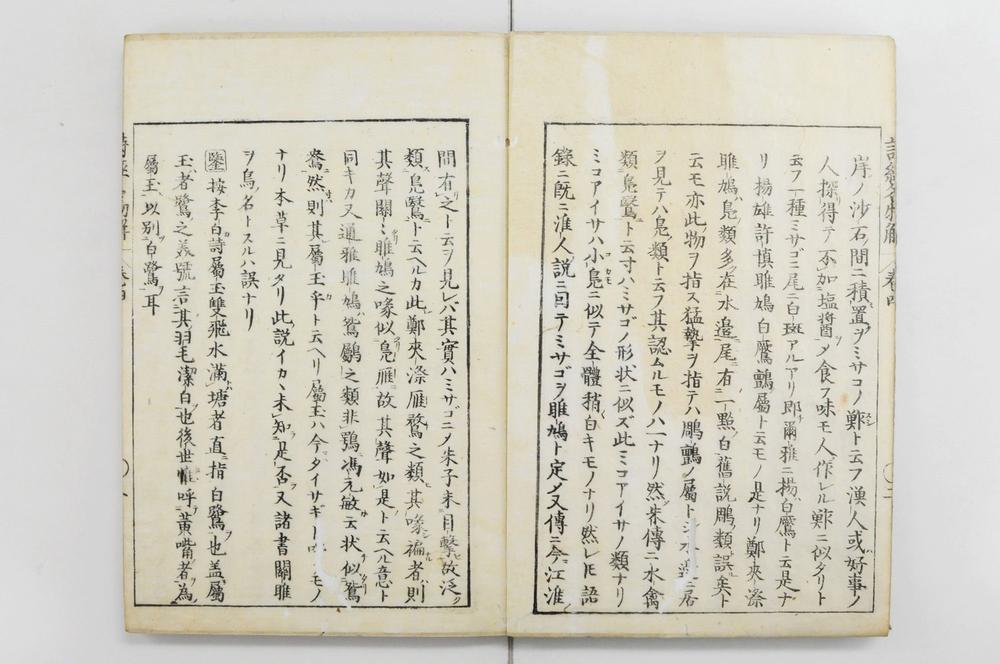 岸ノ沙石間ニ積置ヲミサコノ鮓ト云フ漢人或好事ノ
人探得テ不加塩醤〆食フ味モ人作レル鮓ニ似タリト
云フ一種ミサゴニ尾ニ白斑アルアリ即爾雅ニ揚白鷢ト云是ナ
リ揚雄許慎雎鳩白鷢鸇屬ト云モノ是ナリ鄭夾漈
雎鳩鳬類多在水邉尾有一點白舊説鵰類誤矣ト
云モ亦此物ヲ指ス猛摯ヲ指テハ鵰鸇ノ屬トシ水邉ニ居
ヲ見テハ鳬類ト云フ其認ムルモノハ一ナリ然朱傳ニ水禽
類鳬鷖ト云寸ハミサゴノ形状ニ似ズ此ミコアイサノ類ナリ
ミコアイサハ小鳬ニ似テ全體稍白キモノナリ然レ𪜈語
錄ニ既ニ淮人説ニ回テミサゴヲ雎鳩ト定メ又傳ニ今江淮
間有之ト云ヲ見レバ其實ハミサゴニメ朱子未目擊故泛
類鳬鷖ト云ヘルカ此鄭夾漈雁鶩之類其喙褊者則
其聲關〻雎鳩之喙似鳬雁故其聲如是ト云ヘル意ト
同キカ又通雅雎鳩鴛鸝之類非鶚馮元敏云状似鴛
鴦然則其屬玉乎ト云ヘリ屬玉ハ今タイサギト モノ
ナリ本草ニ見タリ此説イカヽ未知是否又諸書關雎
ヲ鳥名トスルハ誤ナリ
鑒按李白詩屬玉雙飛水滿塘者直指白鷺也盖屬
玉者鷺之義號言其羽毛潔白也後世惟呼黄嘴者為
屬玉以别白鷺耳